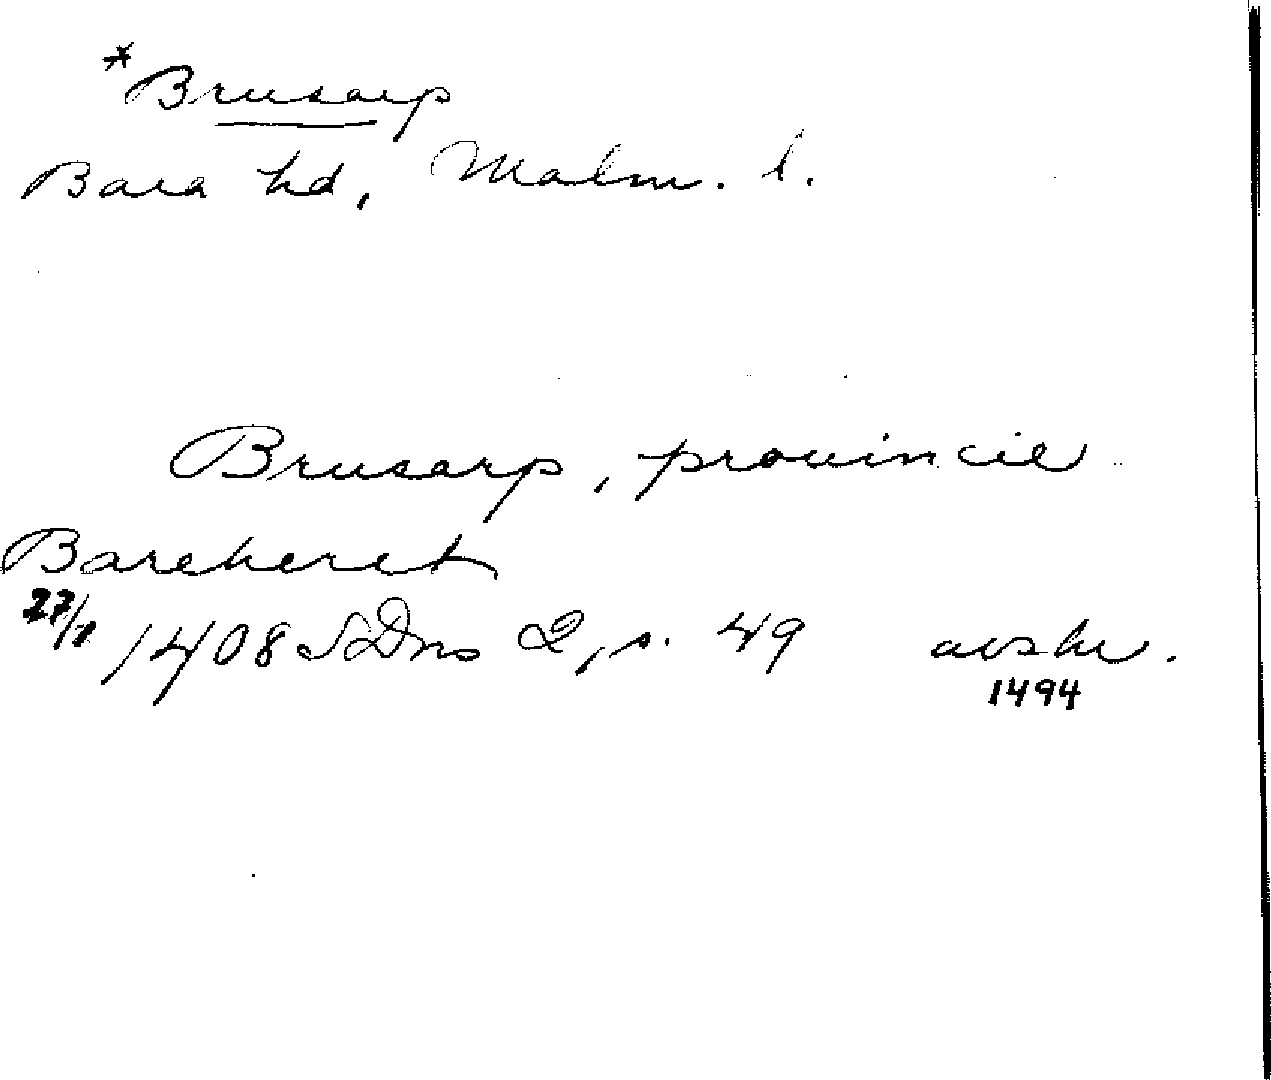 *Brusarp
Bara hd, Malm. l.
Brusarp, provincie
Bareheret
27/1 1408 SDns 2, s. 49 avskr.
1494